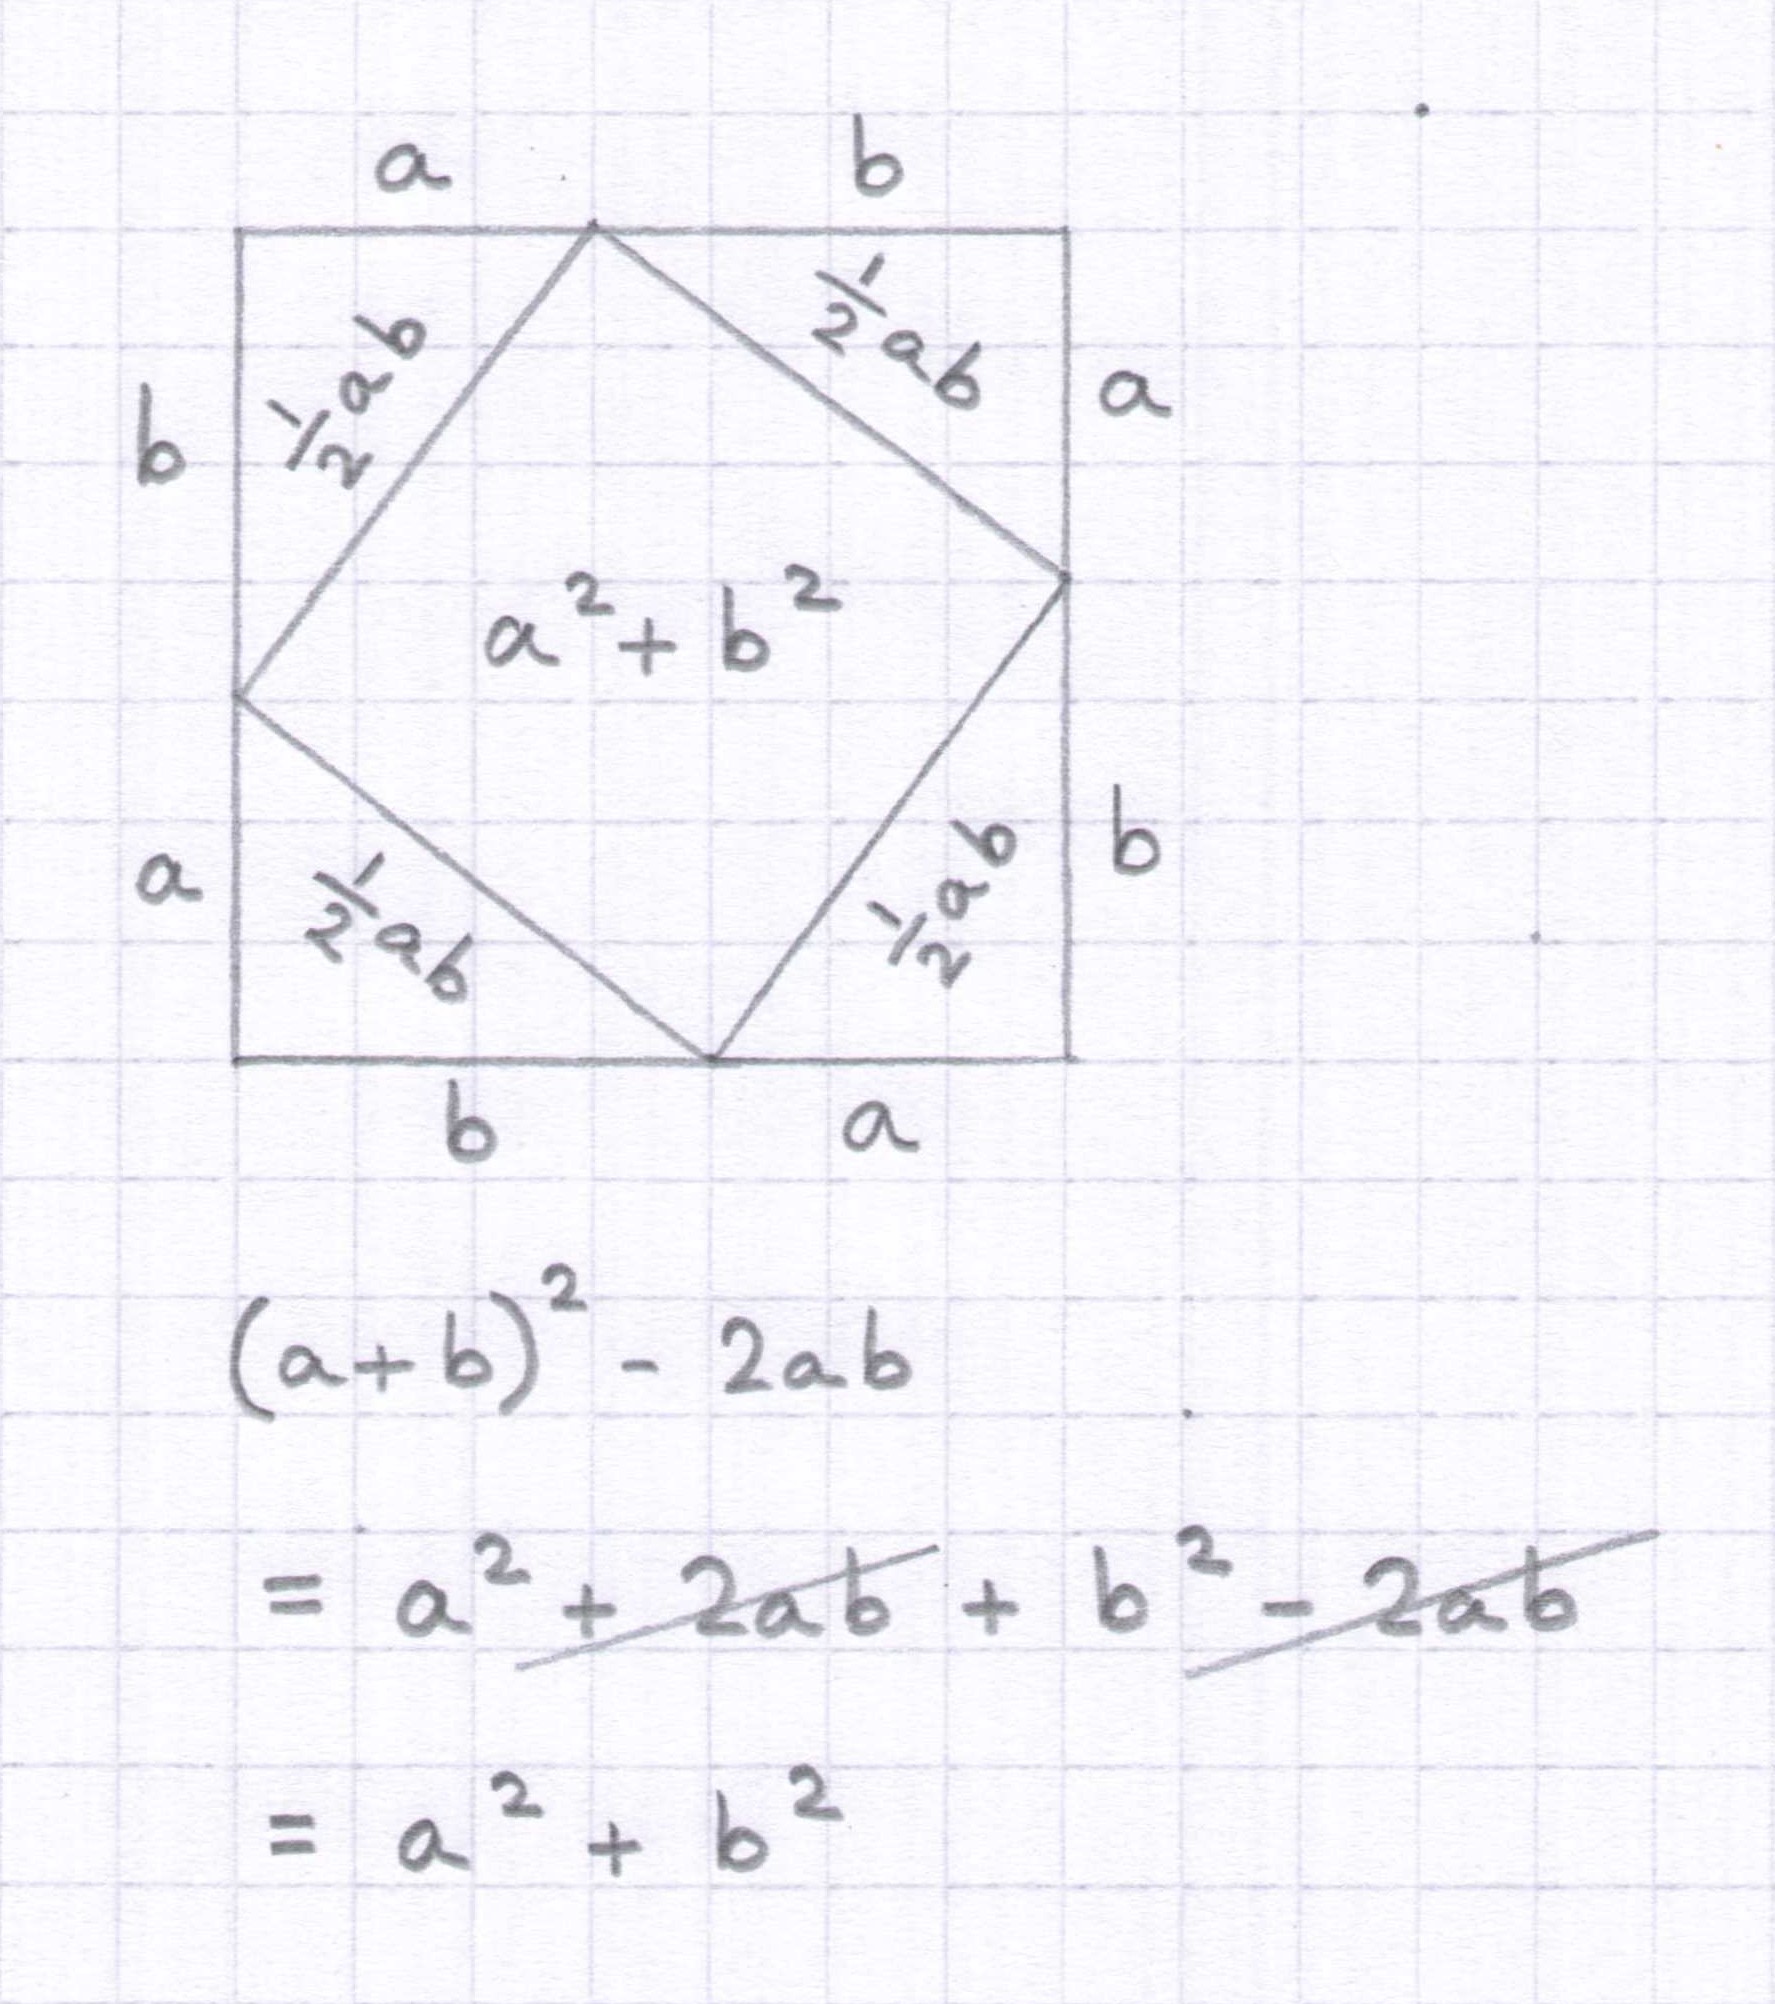 a b
½ab ½ab
b a
a² + b²
a b
½ab ½ab
b a
(a+b)² - 2ab
= a² + 2ab + b² - 2ab
= a² + b²